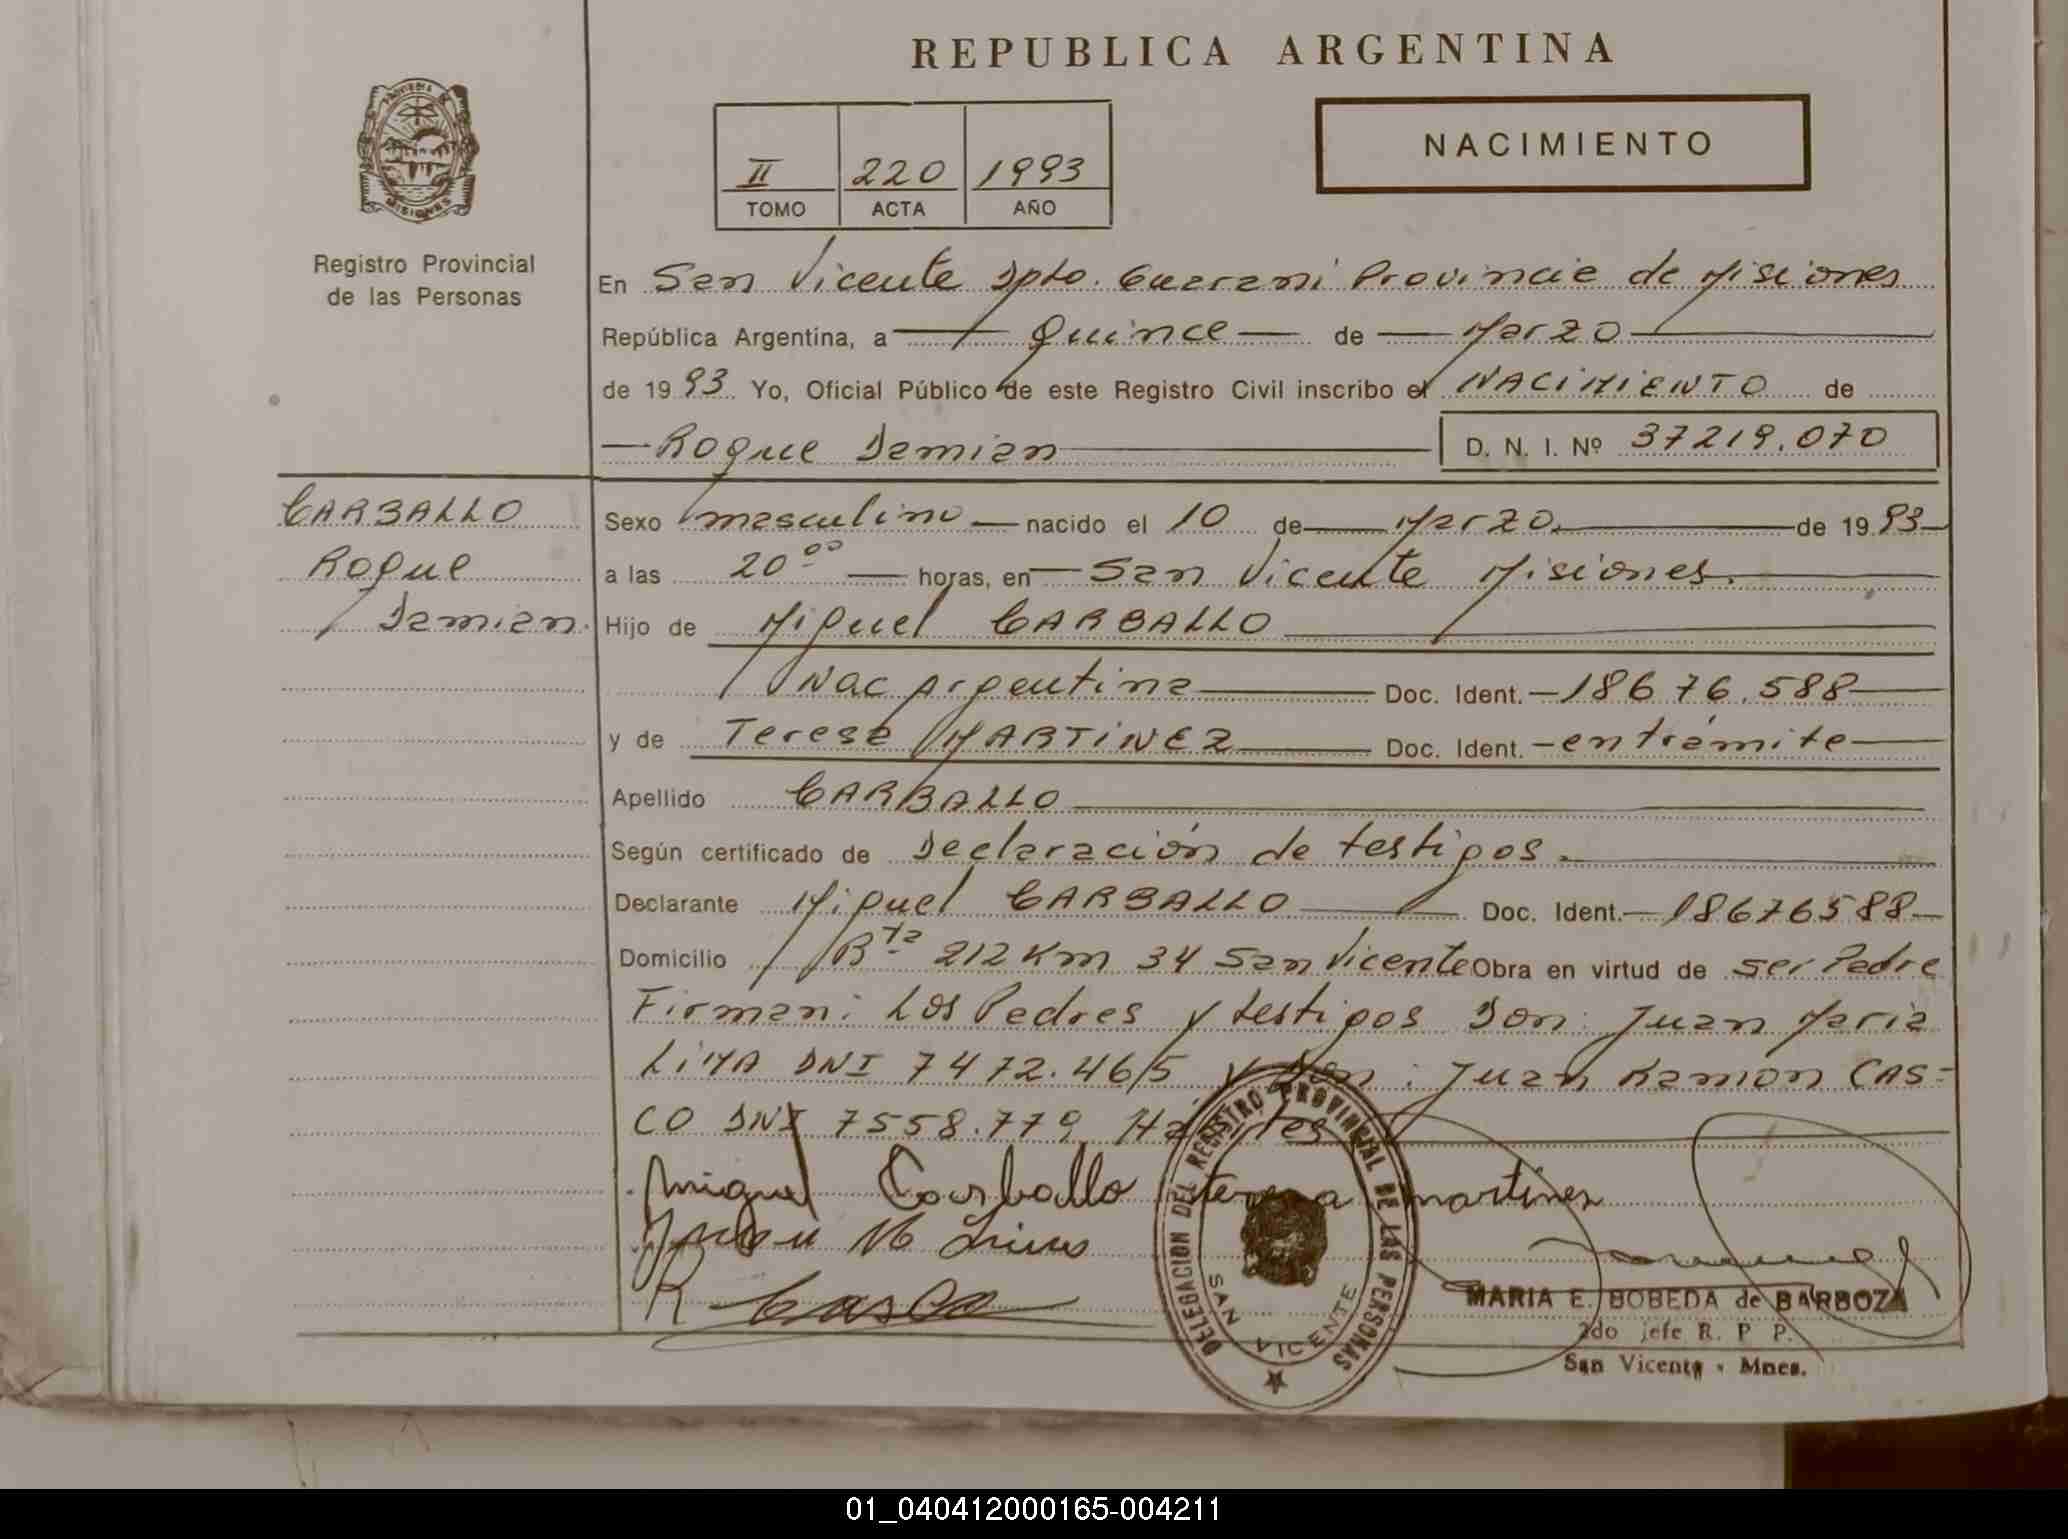 REPUBLICA ARGENTINA
PROVINCIA DE
MISIONES
Registro Provincial
de las Personas
II 220 1993
TOMO ACTA AÑO
NACIMIENTO
En San Vicente Dpto. Guarani Provincia de Misiones
República Argentina, a Quince de Marzo
de 1993. Yo, Oficial Público de este Registro Civil inscribo el NACIMIENTO de
Roque Damian D. N. I. Nº 37219.070
CARBALLO
Roque
Damian.
Sexo masculino nacido el 10 de Marzo. de 1993
a las 20 00 horas, en San Vicente Misiones.
Hijo de Miguel CARBALLO
Nac Argentina Doc. Ident. 18676.588
y de Teresa MARTINEZ Doc. Ident. en trámite
Apellido CARBALLO
Según certificado de Declaración de testigos.
Declarante Miguel CARBALLO Doc. Ident. 18676588
Domicilio Rta 212 Km 34 San Vicente Obra en virtud de ser Padre
Firman: Los Padres y testigos Don: Juan Maria
LIMA DNI 7472.465 y Don: Juan Ramon CAS=
CO DNI 7558.779
Miguel Carballo teresa martines
Juan M Lima
R Casco
DELEGACION DEL REGISTRO PROVINCIAL DE LAS PERSONAS
SAN VICENTE
MARIA E. BOBEDA de BARBOZA
2do jefe R. P P.
San Vicente - Mnes.
01_040412000165-004211